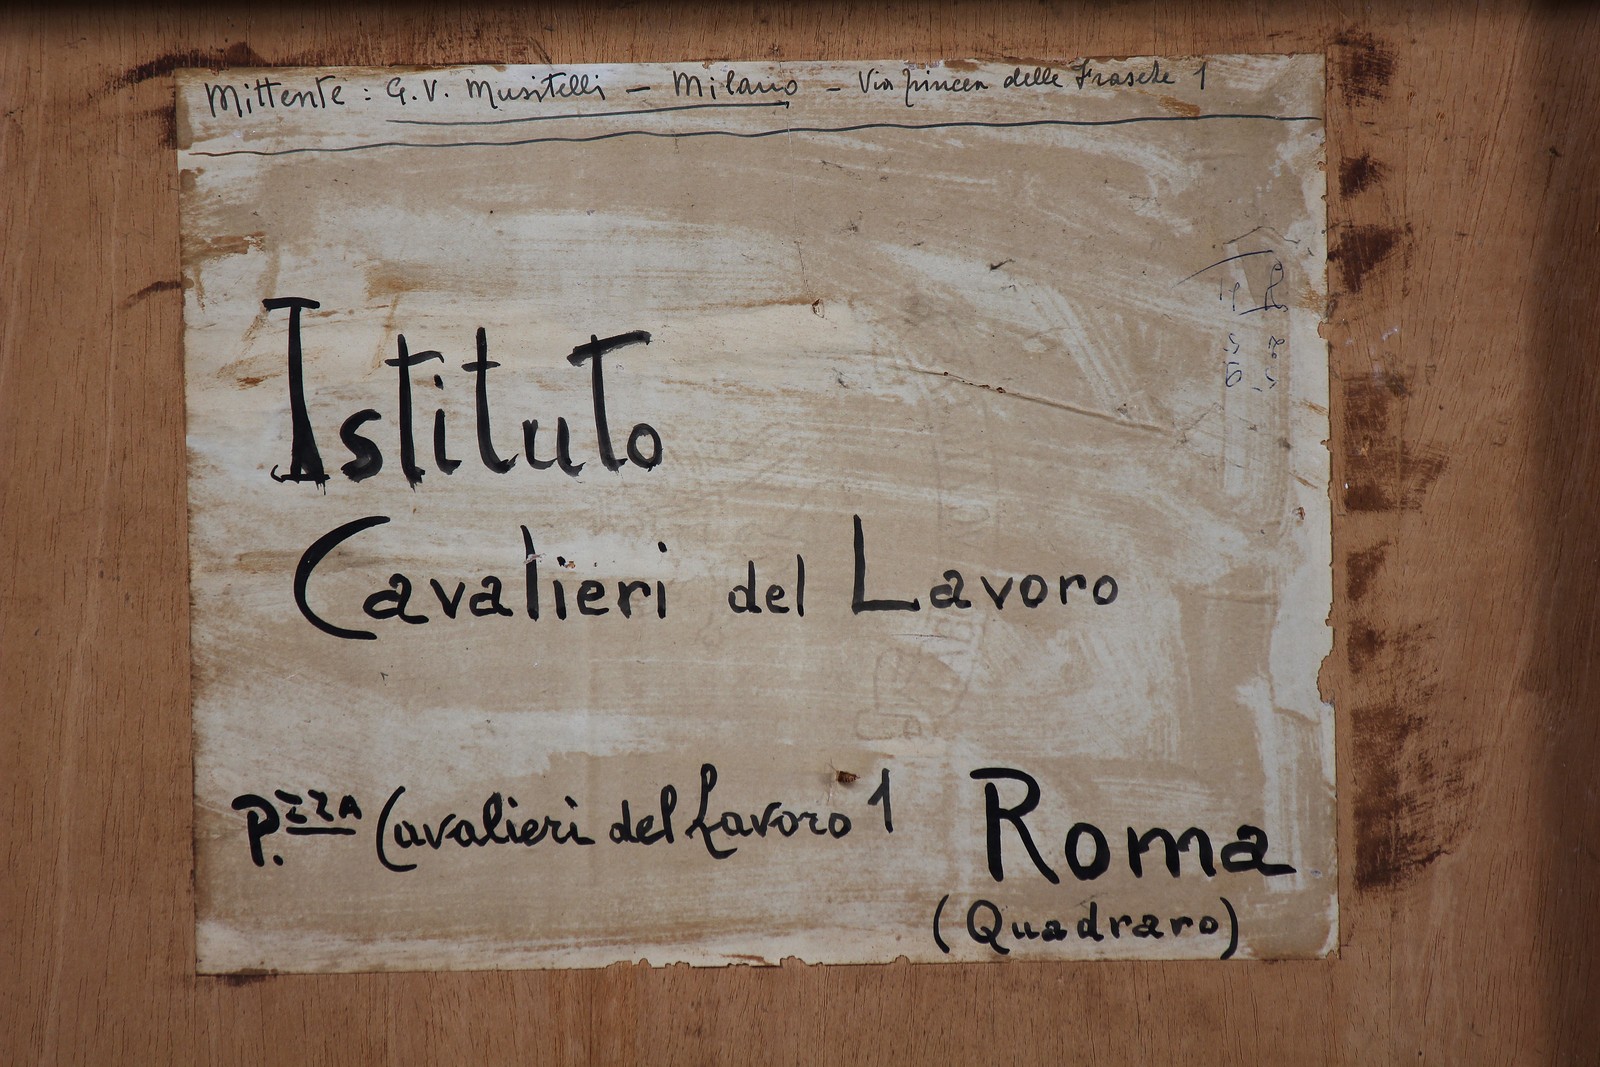 Mittente: G. V. Musitelli - Milano - Via pincea delle Frasche 1
Istituto
Cavalieri del Lavoro
P.zza Cavalieri del Lavoro 1 Roma
(Quadraro)